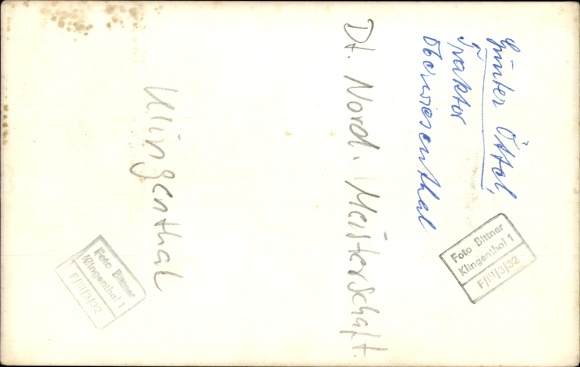 Günter
Traktor
Oberwiesenthal
Dt. Nord. Meisterschaft.
Klingenthal
Foto Bittner
Klingenthal 1
F/III/3/32
Foto Bittner
Klingenthal 1
F/III/3/32